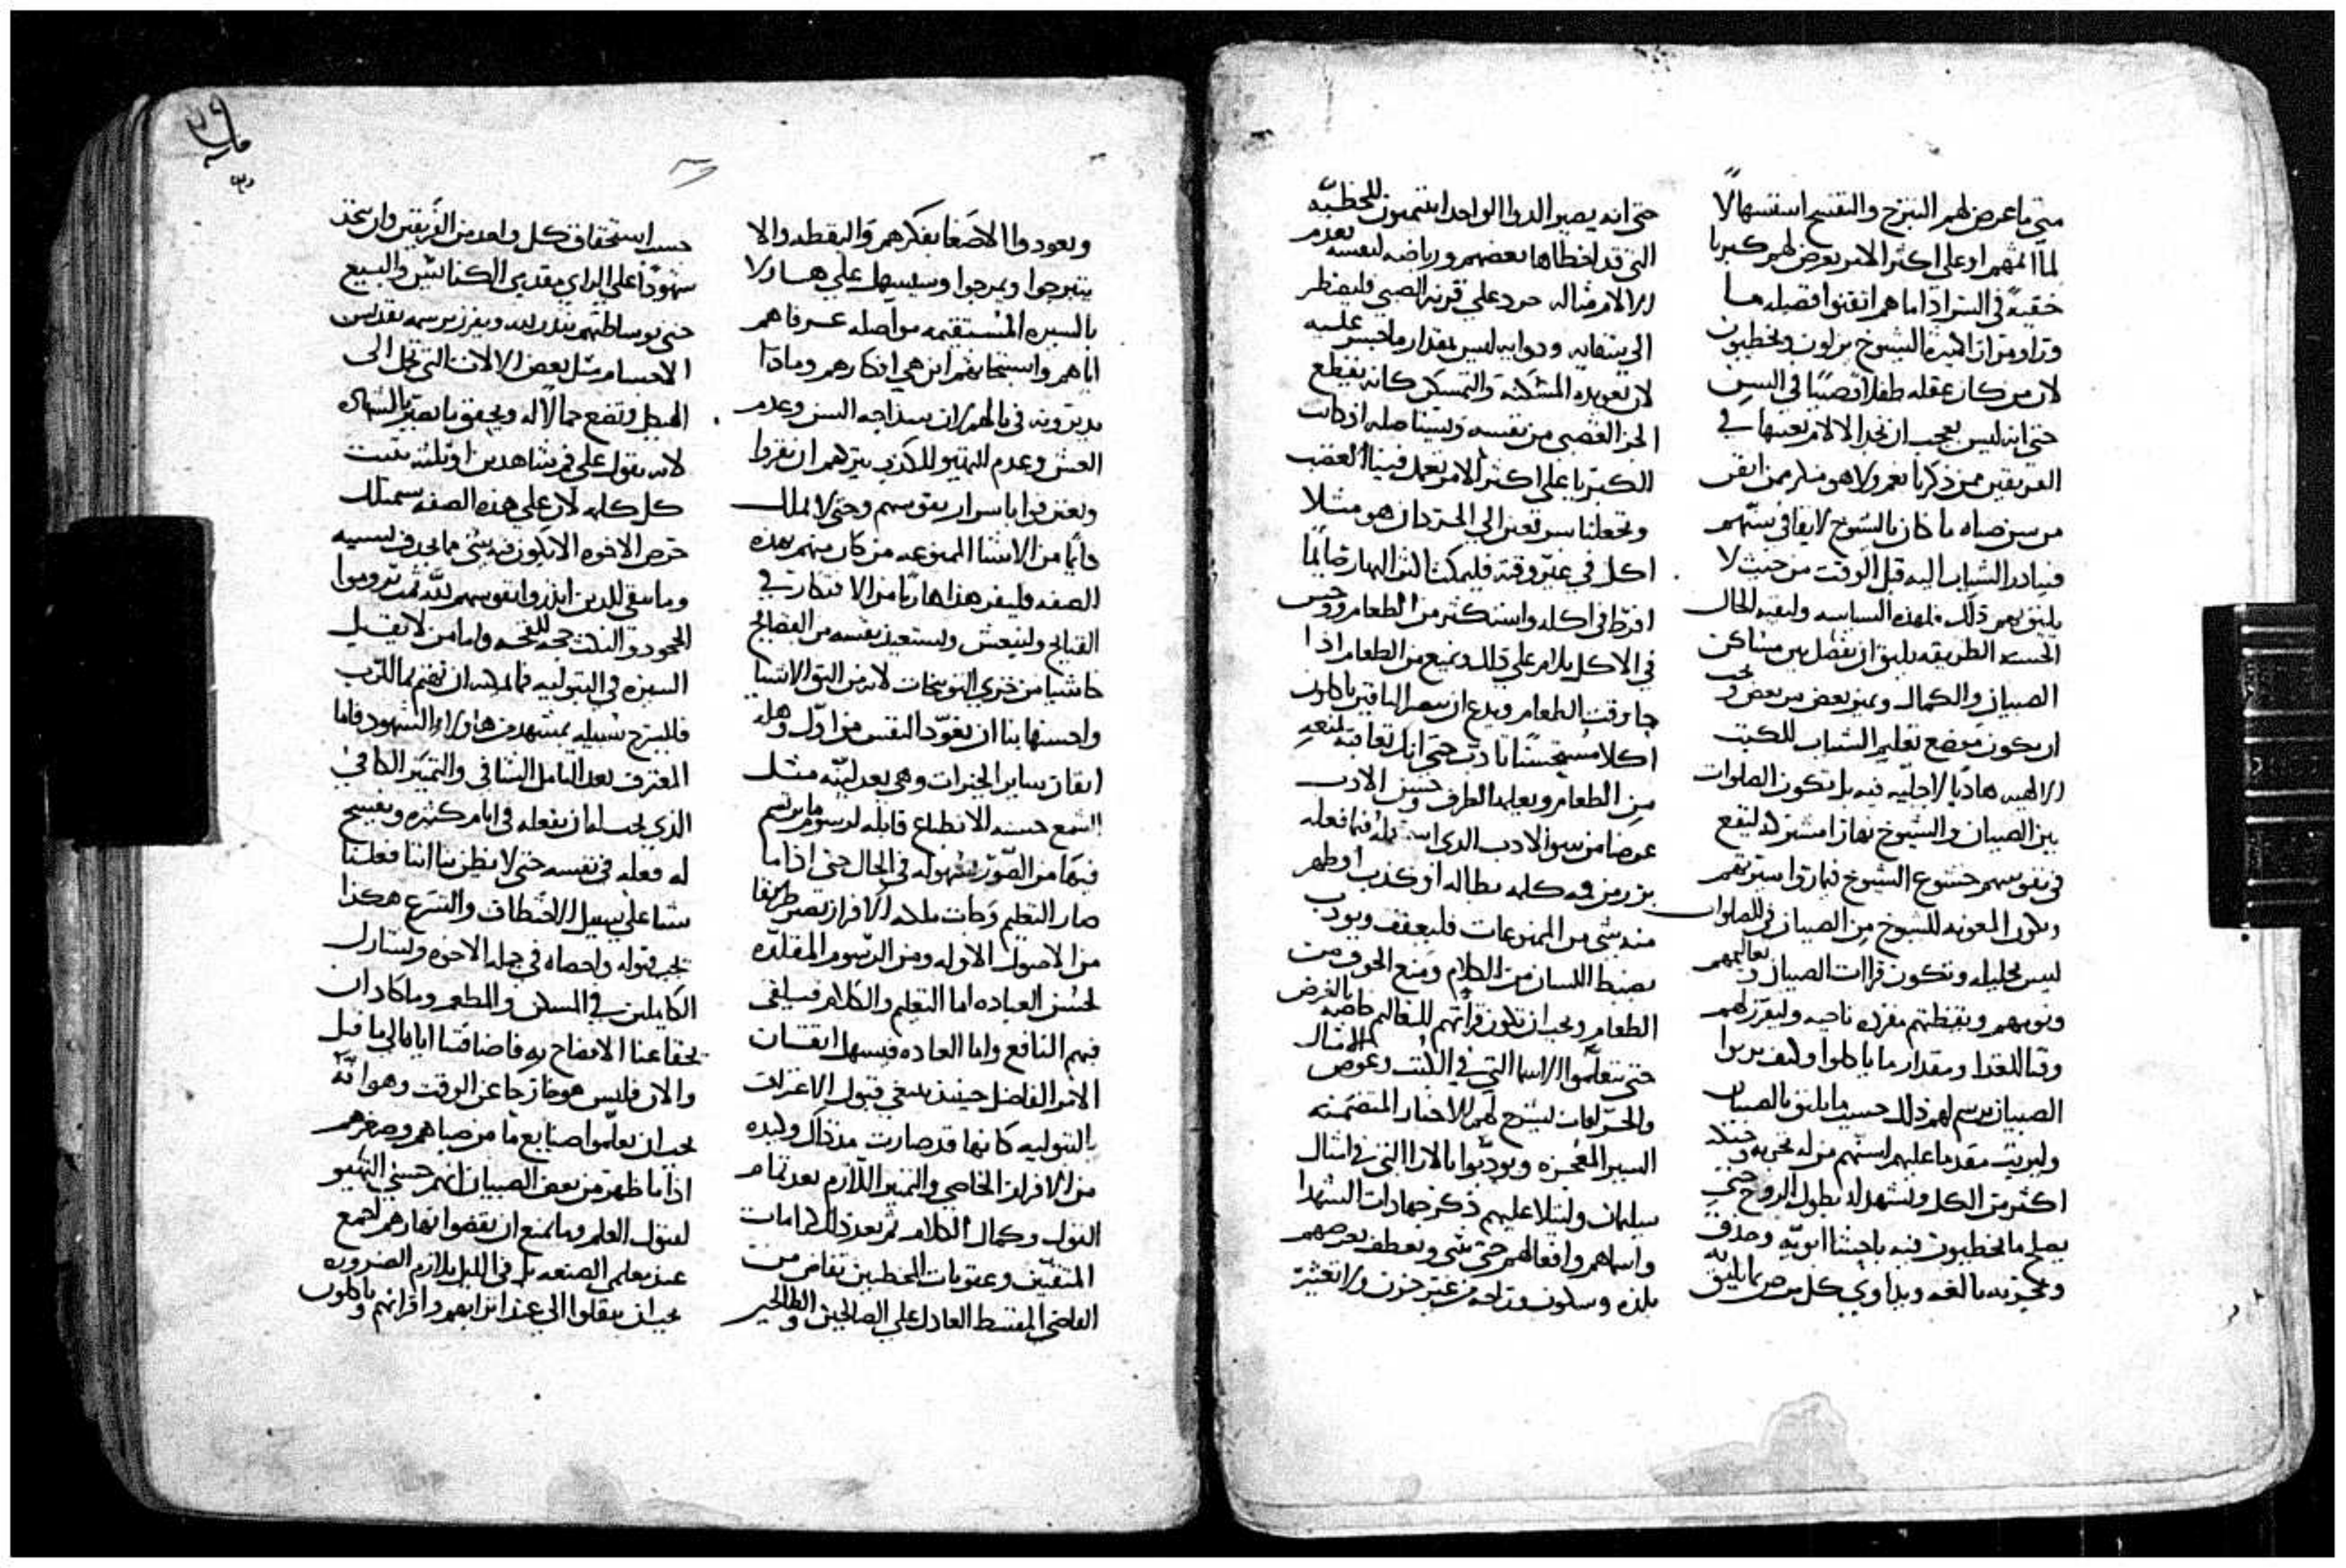 متى ما عرض لهم التبرخ والتفتيح استسهالا
لما اتمهم او على اكثر الامر يعرض لهم كبريا
خفية في السر اذا ما هم اتقنوا فضيله ما
وتراوس ان اكثره الشيوخ يزلون ويخطيون
لان من كان عقله طفلا صبيا في السن
حتى انه ليس يعجب ان نجد الالام نعينها في
الفريقين ممن ذكرنا نعم ولا هو منكر ممن اتقن
من سن صباه ما كان بالشيوخ لايقا في سنهم
فيبادر الشباب اليه قبل الوقت من حيث لا
يليق بهم ذلك فلهذه السياسه ولبقيه الحال
الحسنه الطريقه يليق ان نفصل بين مساكن
الصبيان والكمال ونميز بعض من بعض ويجب
ان يكون موضع تعليم الشباب للكتب
الالهيه هاديا لا جليه فيه بل تكون الصلوات
بين الصبيان والشيوخ نهارا مشتركه ليقع
في نفوسهم خشوع الشيوخ فيما رقوا سيرتهم
وتكون المعونه للشيوخ من الصبيان في الصلوات
ليس بقليله وتكون قراات الصبيان وتعاليمهم
ونومهم ويقظتهم مفرده ناحيه وليفرز لهم
وقت الغدا ومقدار ما ياكلوا وكيف يربوا
الصبيان يرسم لهم ذلك حسب ما يليق بالصبيان
وليرتب مقدما عليهم اسنهم من له تجربه وحنكه
اكثر من الكل ويشهد له بطول الروح حتى
يصلح ما يخطيون فيه باحشا ابويه وحذق
وتجربه بالغه ويداوي كل مرض بما يليق به
حتى انه يصير الدوا الواحد اثنتين للخطيه
التي قد اخطاها بعضهم ورياضه لنفسه بعدم
الالام مثاله حرد على قرنه الصبي فليضطر
الى شفايه ودوايه ليس بمقدار ما جسر عليه
لان تعويده المسكنه والتمسكن كانه يقطع
الحرد الغضبي من نفسه ويستاصله اذ كانت
الكبريا على اكثر الامر تعمل فينا الغضب
وتجعلنا سريعين الى الحردان هو مثلا
اكل في غير وقته فليمكث اكثر النهار صايما
افرط في اكله واستكثر من الطعام ووحش
في الاكل يلام على ذلك ويمنع من الطعام اذا
جا وقت الطعام ويدع ان يبصر الباقين ياكلون
اكلا مستحسنا بادب حتى انك تعاقبه بمنعه
من الطعام ويعلم الظرف وحسن الادب
عوضا من سو الادب الذي استعمله فيما فعله
بزر من فمه كلمه بطاله او كذب او ظهر
منه شي من الممنوعات فليعفف ويودب
بضبط اللسان من الكلام ومنع الجوف من
الطعام ويجب ان تكون قراتهم للتعاليم خاصه بالغرض
حتى يتعلموا الاسما التي في الكتب وعوض الامثال
والخرافات ليشرح لهم الاخبار المتضمنه
السير المعجزه ويودبوا بالارا التي في امثال
سليمان وليتلا عليهم ذكر جهادات الشهدا
واسماهم وافعالهم حتى شي ويعطف بعرضهم
بلذه وسكون وراحه من غير حزن ولا تعثير
ويعودوا الاصغا بفكرهم واليقظه والا
يتبرجوا ويمرحوا وسيسهل علي هاولا
بالسيره المستقيمه مواصله عرفاهم
اياهم واستبحاثهم اين هي افكارهم وماذا
يدبرونه في بالهم لان سذاجه السن وعدم
الغش وعدم التهيو للكذب يتركهم ان يقروا
ويعترفوا باسرار نفوسهم وحتى لا يملك
دايما من الاشيا الممنوعه من كان منهم بهذه
الصفه فليفر هذا هاربا من الافتكار في
القبايح ولينعش وليستعيذ بنفسه من الفضايح
خاشيا من خزي التوبيخات لانه من اليق الاشيا
واحسنها بنا ان نعود النفس من اول وهله
اتقان ساير الخيرات وهي بعد لينه مثل
الشمع حسنه للانطباع قابله لرسوم ما يرتسم
فيها من الصور بسهوله في الحال حتى اذا ما
صار النطق وجات ملكه الافراز تصير طريقا
من الاصول الاوله ومن الرسوم المقلده
لحسن العباده اما التعليم والكلام فيلقى
فيهم النافع واما العاده فيسهل اتقان
الامر الفاضل حينيذ ينبغي قبول الاعتراف
بالبتوليه كانها قد صارت مذ ذاك وكيده
من الافراز الخاصي والتمييز اللازم بعد تمام
القول وكمال الكلام ثم بعد ذلك كرامات
المتقين وعقوبات المخطيين تقاض من
القاضي المقسط العادل على الصالحين والطالحين
حسب استحقاق كل واحد من الفريقين وان تتخذ
شهودا على الراي مقدمي الكنايس والبيع
حتى بوساطتهم تنذر لله ويفرز برسمه تقديس
الاجسام مثل بعض الالات التي تحمل الى
الهيكل وتضع حمالا له ويحقق ما يصير بالشهاده
لانه يقول على فم شاهدين او ثلثه تثبت
كل كلمه لان على هذه الصفه سيمتلك
حرص الاخوه الا يكون فيه شي مما يجدف بسببه
وما يبقي للذين انذروا نفوسهم لله ثم تروموا
الجحود والنكث حجه للقحه واما من لا يقبل
السيره في البتوليه فلا يمكنه ان يهتم بما للرب
فليسرح سبيله بمشهد من هاولاء الشهود فاما
المعترف بعد التامل الشافي والتمييز الكافي
الذي يجب له ان يفعله في ايام كثيره ويفسح
له فعله في نفسه حتى لا يظن بنا اننا فعلنا
شيا على سبيل الاختطاف والتسرع هكذا
يجب قبوله واحصاه في جمله الاخوه ويشارك
الكاملين في المسكن والمطعم وما كاد ان
يخفا عنا الافصاح به فاضافتنا اياه الى ما قبل
والان فليس هو خارجا عن الوقت وهو انه
يجب ان يعلموا صنايع ما من صباهم وصغرهم
اذا ما ظهر من بعض الصبيان انهم حسني التهيو
لقبول العلم وما يمنع ان يقضوا نهارهم اجمع
عند معلمي الصنعه بل في الليل يلازم الضروره
يجب ان ينقلوا الى عند اترابهم واقرانهم وياكلون